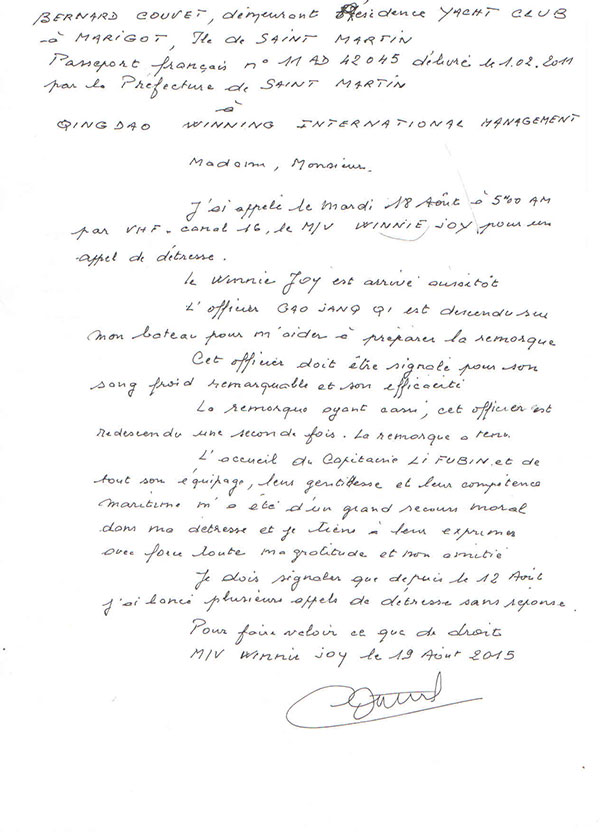 BERNARD COUVET, demeurant Résidence YACHT CLUB
à MARIGOT, Ile de SAINT MARTIN
Passeport français n° 11 AD 42045 délivré le 1.02.2011
par la Préfecture de SAINT MARTIN
à
QINGDAO WINNING INTERNATIONAL MANAGEMENT
Madame, Monsieur.
J'ai appelé le Mardi 18 Août à 5h00 AM
par VHF - canal 16, le M/V WINNIE JOY pour un
appel de détresse.
Le Winnie Joy est arrivé aussitôt
L'officier GAO JANG QI est descendu sur
mon bateau pour m'aider à préparer la remorque
Cet officier doit être signalé pour son
sang froid remarquable et son efficacité
La remorque ayant cassé, cet officier est
redescendu une seconde fois. La remorque a tenu.
L'accueil du Capitaine LI FUBIN et de
tout son équipage, leur gentillesse et leur compétence
maritime m'a été d'un grand secours moral
dans ma détresse et je tiens à leur exprimer
avec force toute ma gratitude et mon amitié
Je dois signaler que depuis le 12 Août
j'ai lancé plusieurs appels de détresse sans réponse.
Pour faire valoir ce que de droit
M/V Winnie Joy le 19 Août 2015